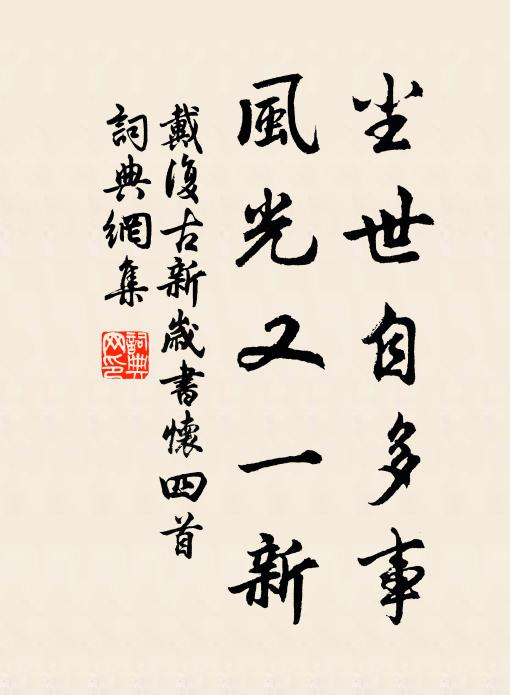 尘世自多事
風光又一新
戴復古新歲書懷四首
詞典網集
詞典网印